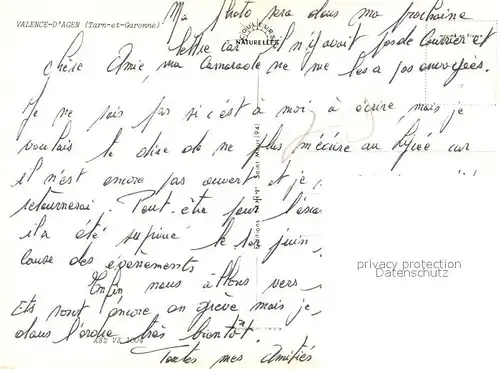 Ma photo sera dans ma prochaine
VALENCE-D'AGEN (Tarn-et-Garonne)
COULEURS NATURELLES
lettre car il n'y avait pas de courrier et
chère Amie, ma Camarade ne me les a pas envoyées.
Je ne sais pas si c'est à moi, à écrire mais je
voulais te dire de ne plus m'écrire au lycée car
il n'est encore pas ouvert et je
retournerai. Peut-être pour l'
il a été supprimé le 1er juin
cause des évènements
Enfin nous allons vers
Ets sont encore en grève mais je
dans l'ordre très bientôt.
Toutes mes Amitiés
privacy protection
Datenschutz